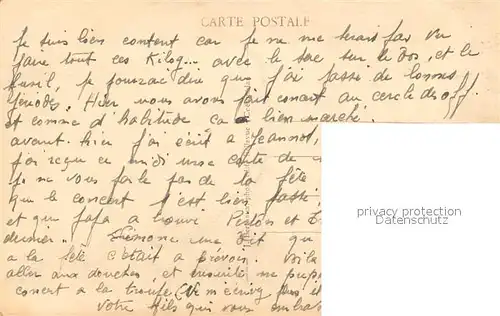 CARTE POSTALE
Je suis bien content car je ne me serais pas vu
faire tout ces Kilog... avec le sac sur le dos, et le
fusil, je pourrai dire que j'ai passé de bonnes
périodes. Hier nous avons fait concert au cercle des off.
et comme d'habitude ça a bien marché.
avant-hier j'ai écrit a Jeannot,
j'ai reçu ce midi une carte de
Je ne vous parle pas de la fête
que le concert s'est bien passé,
et que papa a trouvé Piston et
dernier.. Simone me dit qu
a la fête c'était a prévoir.
aller aux douches, et ensuite me prépa
concert a la troupe (Ne m'écrivez plus
votre fils qui vous embras
privacy protection
www.delcampe.de